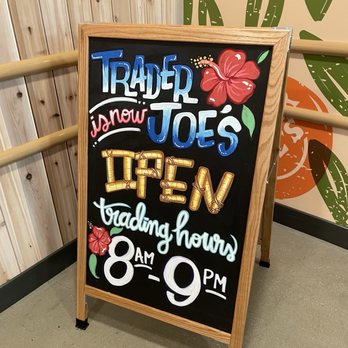 TRADER
is now JOE'S
OPEN
trading hours
8AM-9PM